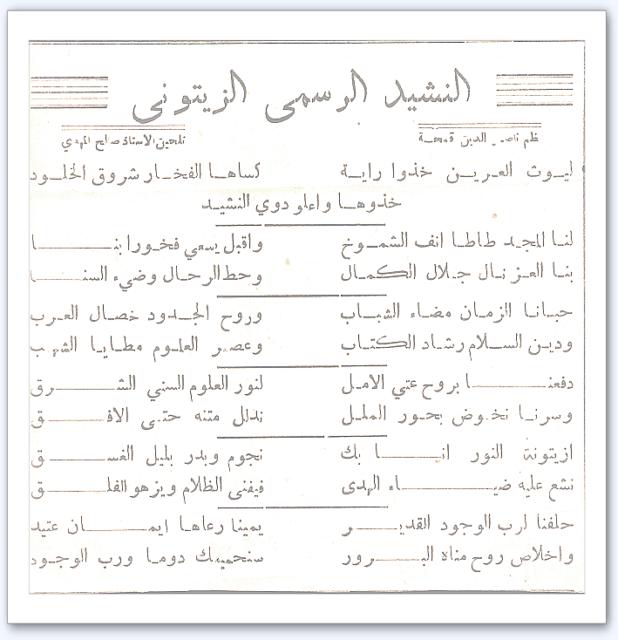 النشيد الرسمي الزيتوني
نظم ناصر الدين قمحة تلحين الاستاذ صالح المهدي
ليوث العرين خذوا راية كساها الفخار شروق الخلود
خذوها واعلو دوي النشيد
لنا المجد طاطا انف الشموخ واقبل يسعى فخورا بنا
بنا العز نال جلال الكمال وحط الرحال وضيء السنا
حبانا الزمان مضاء الشباب وروح الجدود خصال العرب
ودين السلام رشاد الكتاب وعصر العلوم مطايا الشهب
دفعنا بروح عتي الامل لنور العلوم السني الشرق
وسرنا نخوض بحور الملل ندلل متنه حتى الافق
ازيتونة النور انا بك نجوم وبدر بليل الغسق
نشع عليه ضياء الهدى فيفنى الظلام ويزهو الفلق
حلفنا لرب الوجود القدير يمينا رعاها ايمان عتيد
واخلاص روح مناه البرور سنحميك دوما ورب الوجود